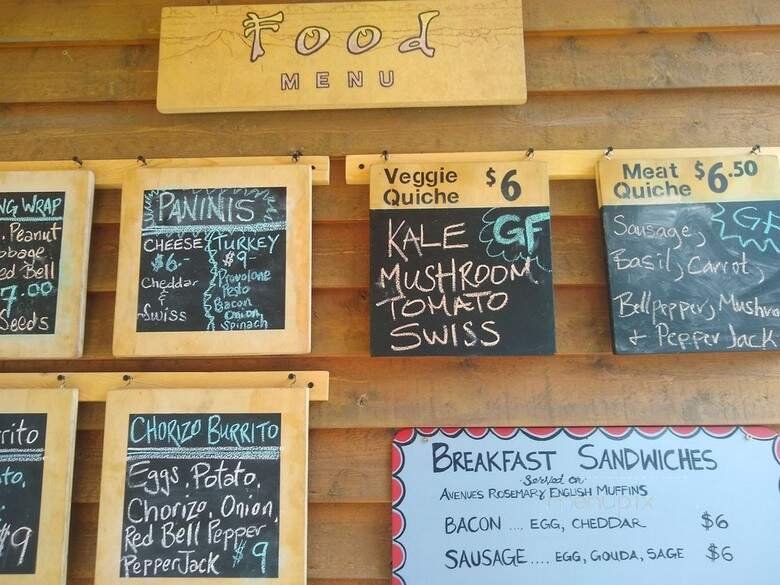 Food
MENU
NG WRAP
Peanut
bbage
ed Bell
7.00
Seeds
PANINIS
CHEESE
$6.-
Cheddar
&
Swiss
TURKEY
$9-
Provolone
Pesto
Bacon
Onion,
Spinach
Veggie $6
Quiche
KALE GF
MUSHROOM
TOMATO
SWISS
Meat $6.50
Quiche
Sausage,
Basil, Carrot,
Bellpepper, Mushro
+ Pepper Jack
rito
to,
$9
CHORIZO BURRITO
Eggs, Potato,
Chorizo, Onion,
Red Bell Pepper
PepperJack $9
BREAKFAST SANDWICHES
Served on
AVENUES ROSEMARY ENGLISH MUFFINS
BACON ... EGG, CHEDDAR $6
SAUSAGE.... EGG, GOUDA, SAGE $6